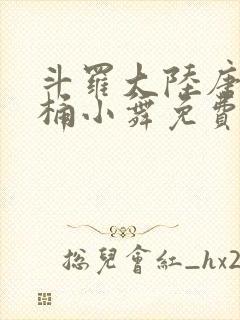 斗羅大陸唐
桶小舞免費
總兒會紅_hx2